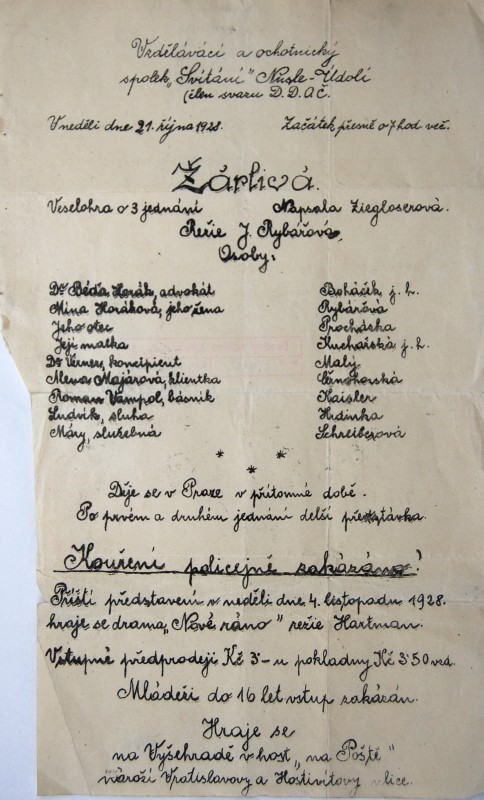 Vzdělávácí a ochotnický
spolek „Svítání" Nusle-Údolí
(člen svazu D.D.A.Č.
V neděli dne 21. října 1928. Začátek přesně o 7 hod več.
Žárlivá.
Veselohra o 3 jednání Napsala Ziegloserová.
Režie J. Rybářová,
Osoby:
Dr Béďa Horák, advokát Boháček j. h.
Mína Horáková, jeho žena Rybářová
Jeho otec Procháska
Její matka Kuchařská j. h.
Dr Verner, koncipient Malý
Alena Majarová, klientka
Roman Vampol, básník Kaisler
Ludvík, sluha Hrdinka
Máry, služebná Schreiberová
* * *
Děje se v Praze v přítomné době.
Po prvém a druhém jednání delší přestávka.
Kouření policejně zakázáno!
Příští představení v neděli dne 4. listopadu 1928.
hraje se drama „Nové ráno" režie Hartman.
Vstupné předprodeji Kč 3- u pokladny Kč 3·50 vzd.
Mládeži do 16 let vstup zakázán.
Hraje se
na Vyšehradě v host „na Poště"
nároží Vratislavovy a Hostivítovy ulice.